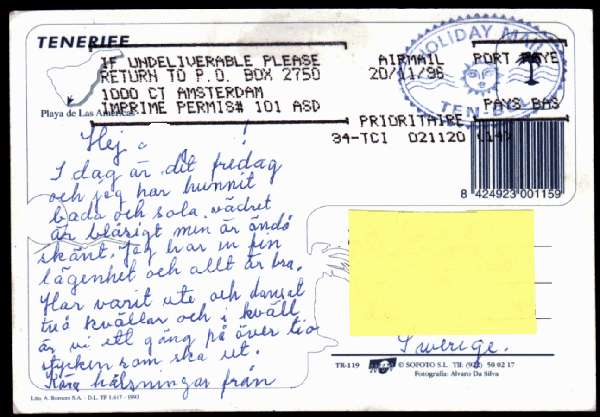 TENERIFE
IF UNDELIVERABLE PLEASE
RETURN TO P.O. BOX 2750
1000 CT AMSTERDAM
IMPRIME PERMIS# 101 ASD
AIRMAIL
20/11/96
PORT PAYE
PAYS BAS
HOLIDAY MAIL
PRIORITAIRE
34-TCI 021120
Playa de Las Américas
8 424923 001159
Hej !
I dag är dit fredag
och jag har hunnit
bada och sola, vädret
är blåsigt men är ändå
skönt. Jag har en fin
lägenhet och allt är bra.
Har varit ute och dansat
två kvällar och i kväll
är vi ett gäng på över tio
stycken som ska ut.
Kära hälsningar från
Sverige.
TR-119 © SOFOTO S.L. Tlf: (922) 50 02 17
Fotografía: Alvaro Da Silva
Lito. A. Romero S.A. - D.L. TF 1.617 - 1993